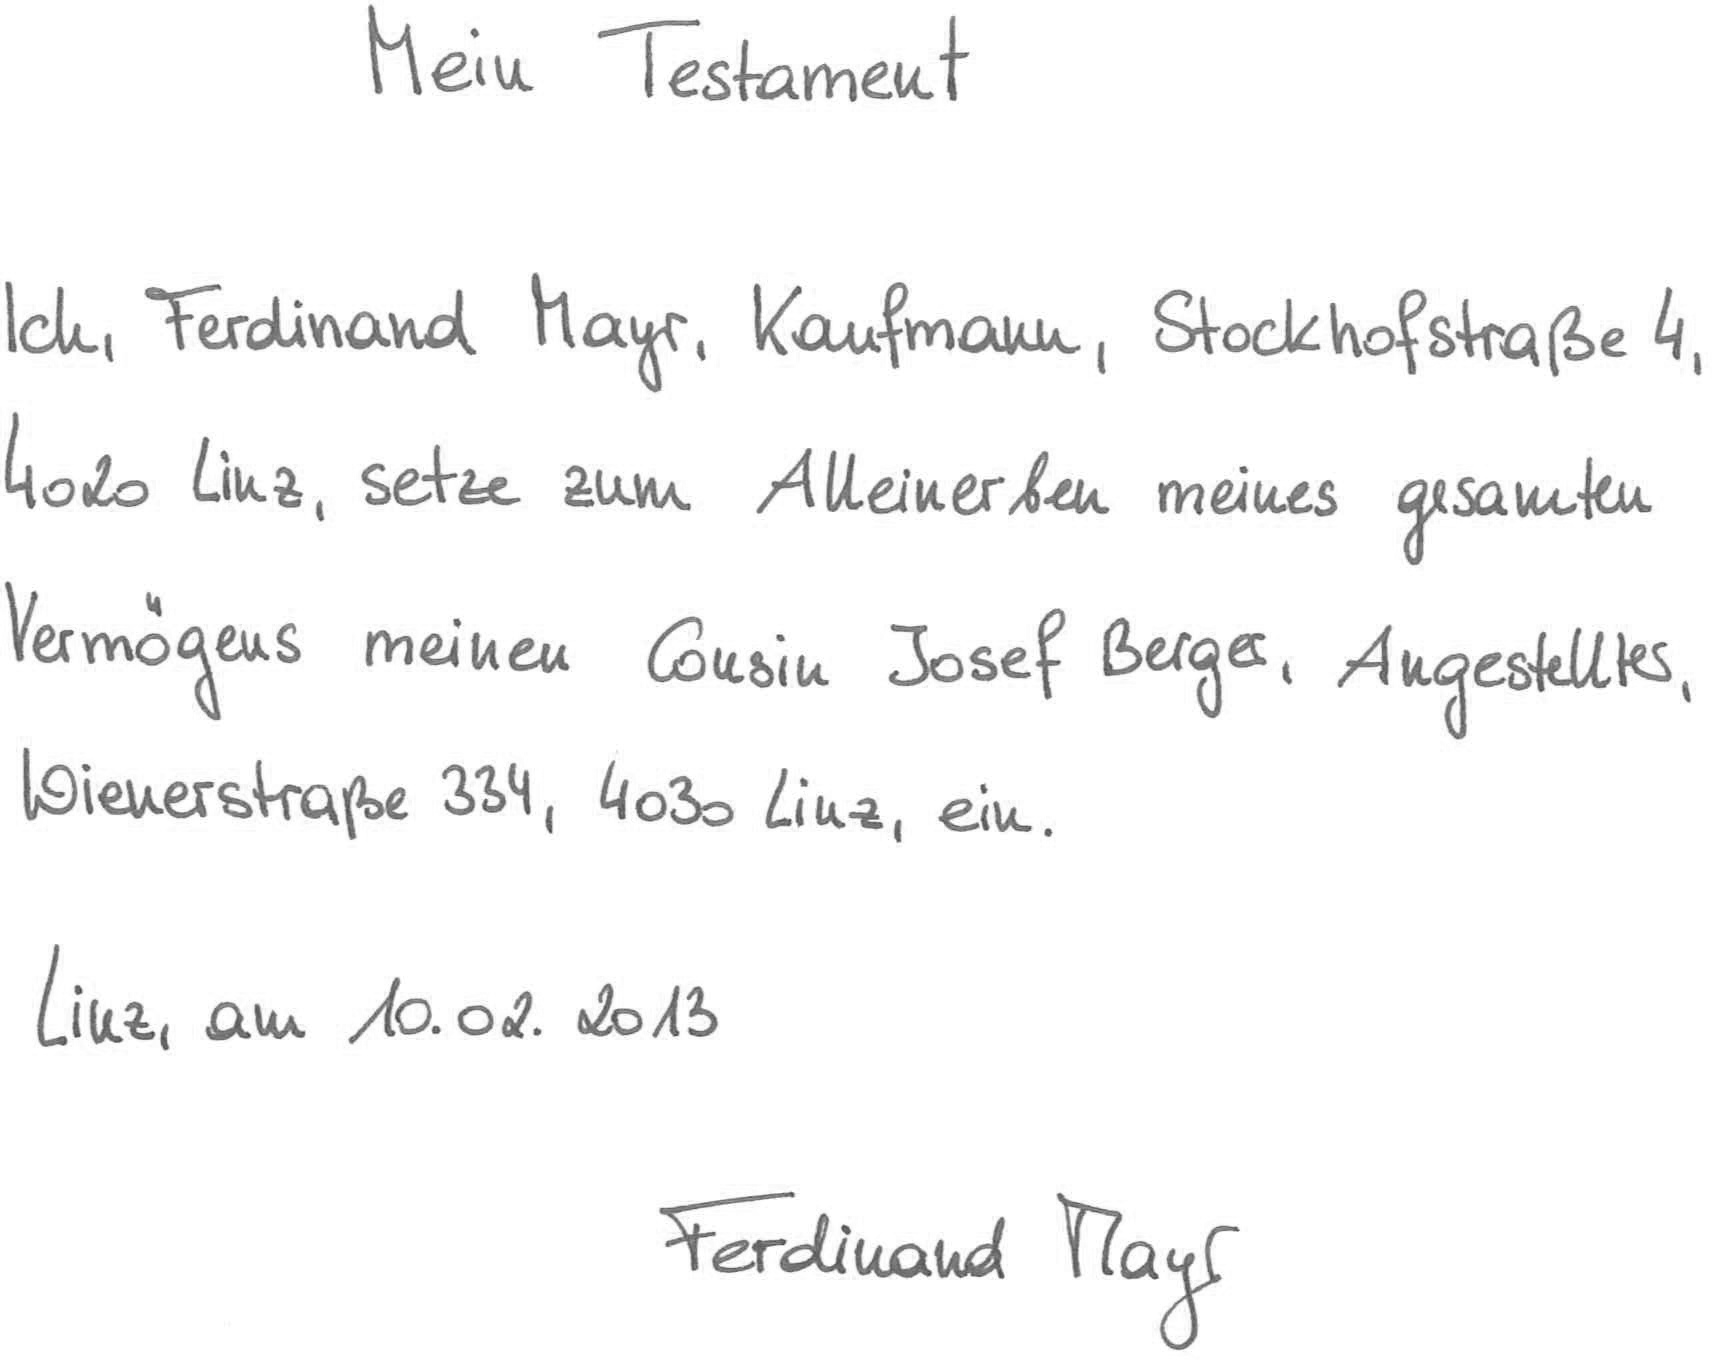 Mein Testament
Ich, Ferdinand Mayr, Kaufmann, Stockhofstraße 4,
4020 Linz, setze zum Alleinerben meines gesamten
Vermögens meinen Cousin Josef Berger, Angestellter,
Wienerstraße 334, 4030 Linz, ein.
Linz, am 10.02.2013
Ferdinand Mayr